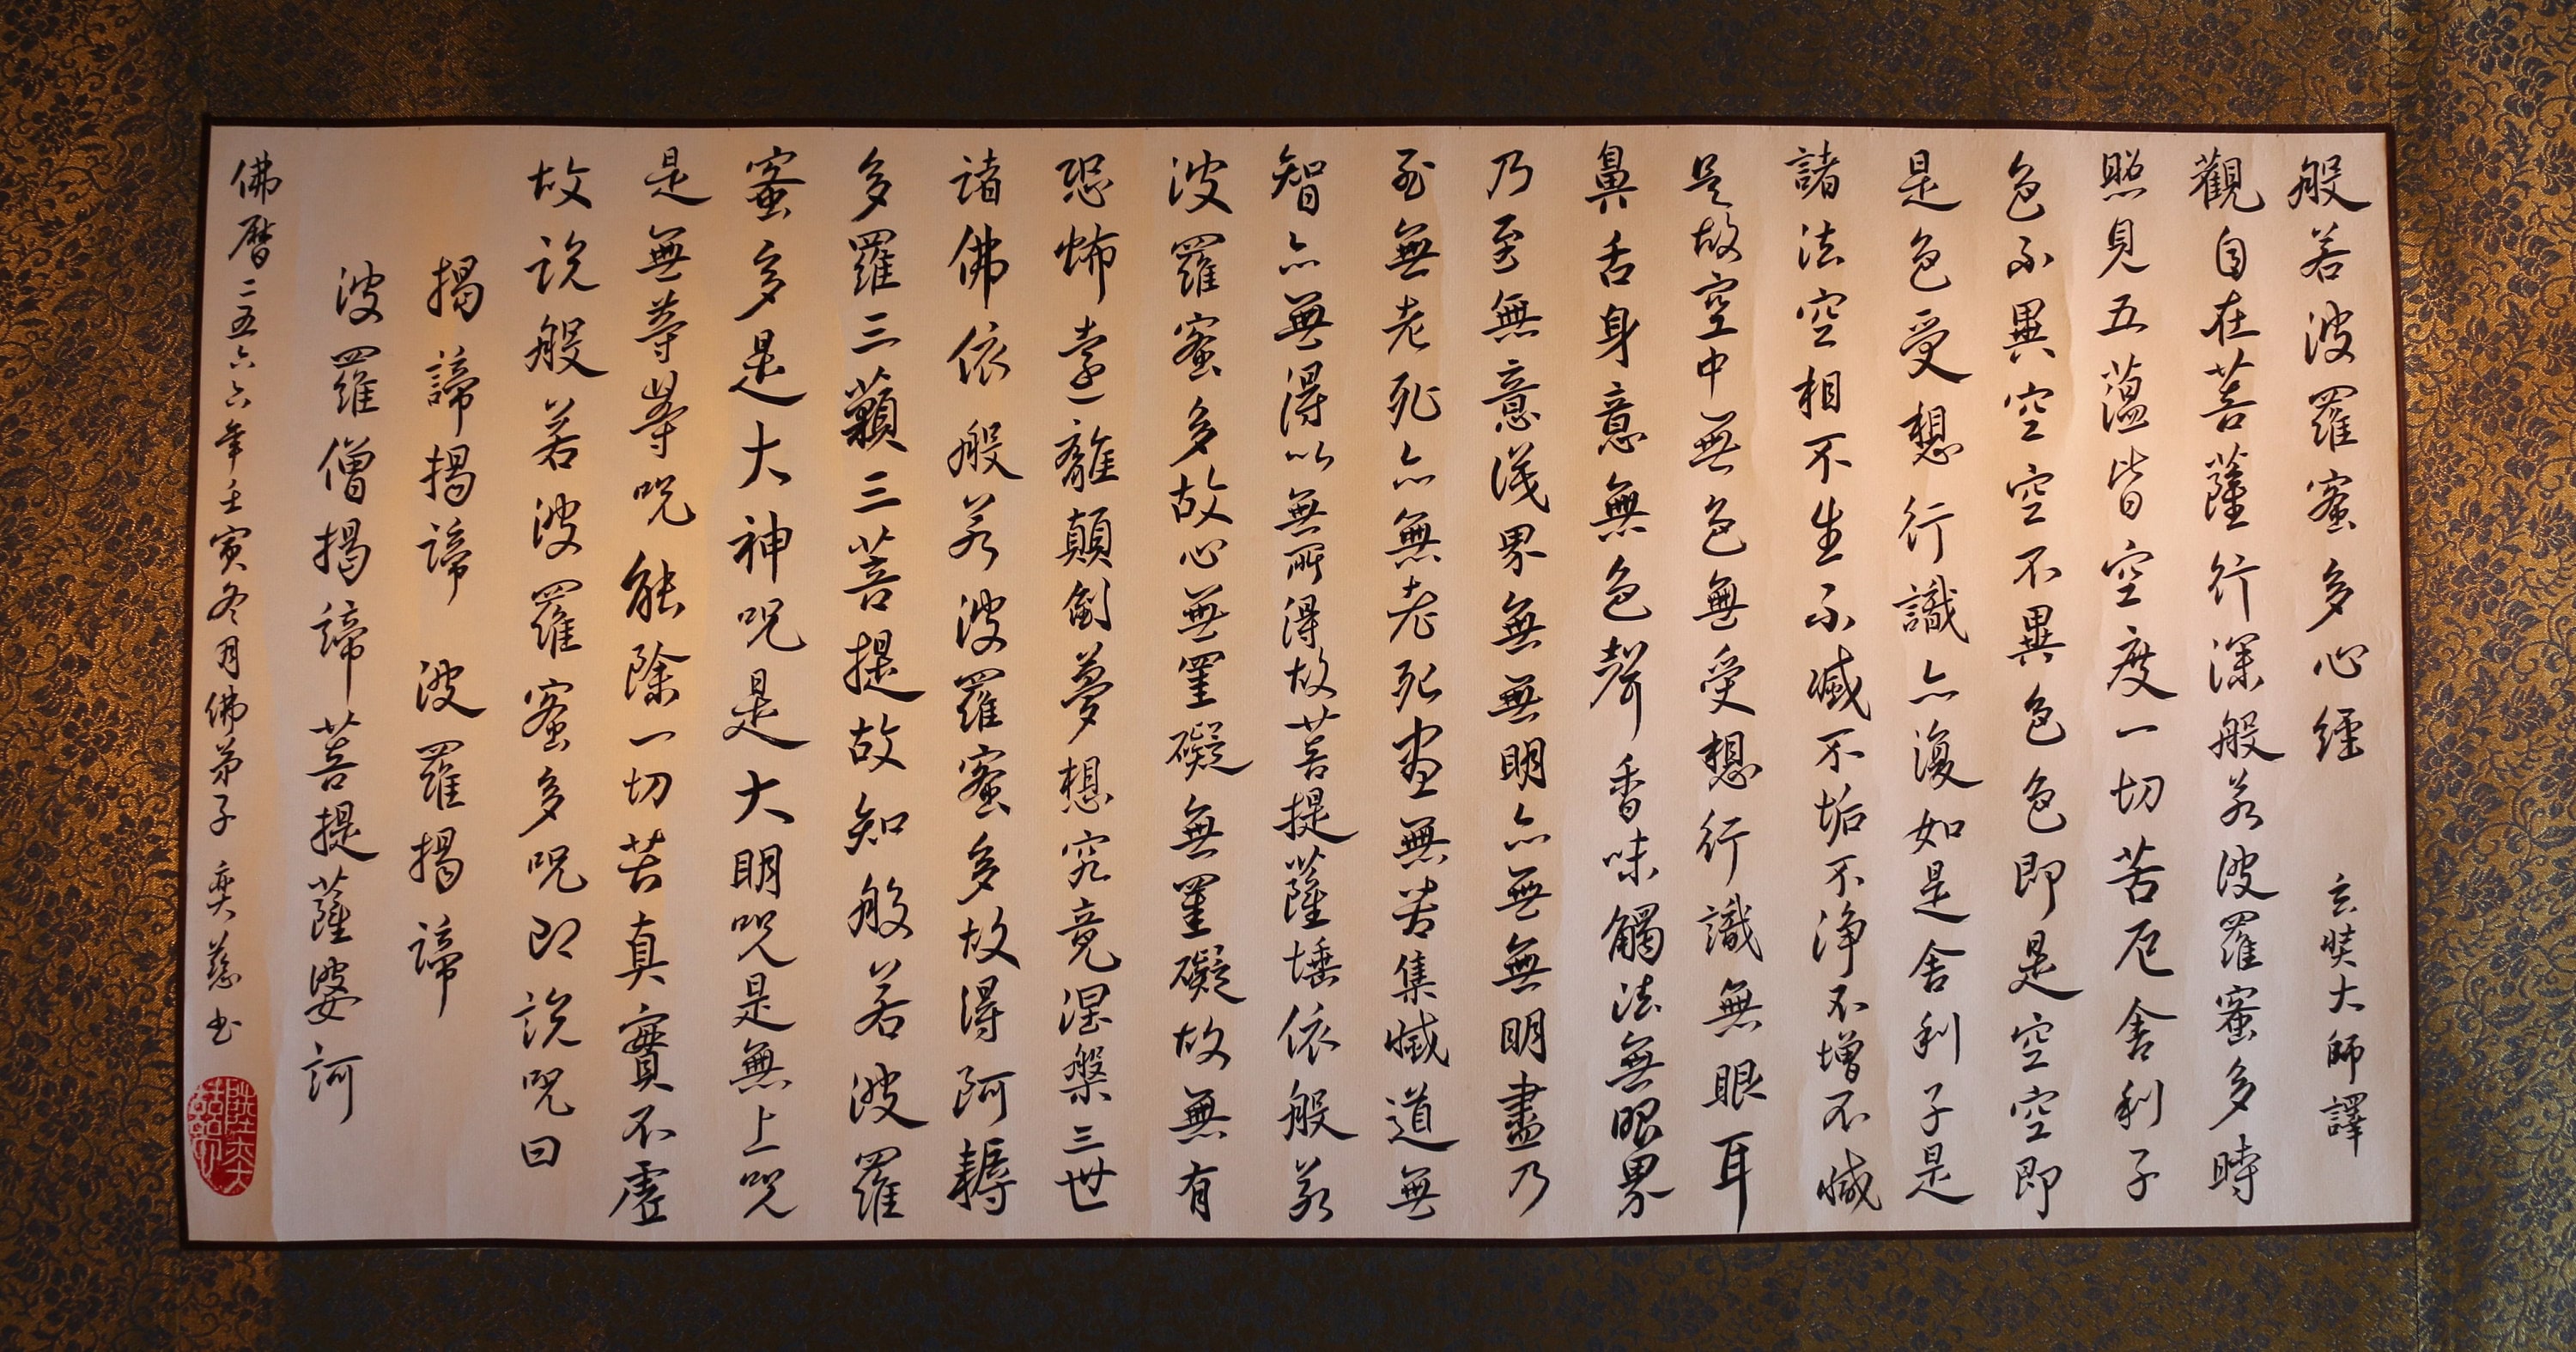 般若波羅蜜多心經 玄奘大師譯
觀自在菩薩行深般若波羅蜜多時
照見五蘊皆空度一切苦厄舍利子
色不異空空不異色色即是空空即
是色受想行識亦復如是舍利子是
諸法空相不生不滅不垢不淨不增不減
是故空中無色無受想行識無眼耳
鼻舌身意無色聲香味觸法無眼界
乃至無意識界無無明亦無無明盡乃
至無老死亦無老死盡無苦集滅道無
智亦無得以無所得故菩提薩埵依般若
波羅蜜多故心無罣礙無罣礙故無有
恐怖遠離顛倒夢想究竟涅槃三世
諸佛依般若波羅蜜多故得阿耨
多羅三藐三菩提故知般若波羅
蜜多是大神咒是大明咒是無上咒
是無等等咒能除一切苦真實不虛
故說般若波羅蜜多咒即說咒曰
揭諦揭諦 波羅揭諦
波羅僧揭諦菩提薩婆訶
佛曆二五六六年壬寅冬月佛弟子 奕慈书